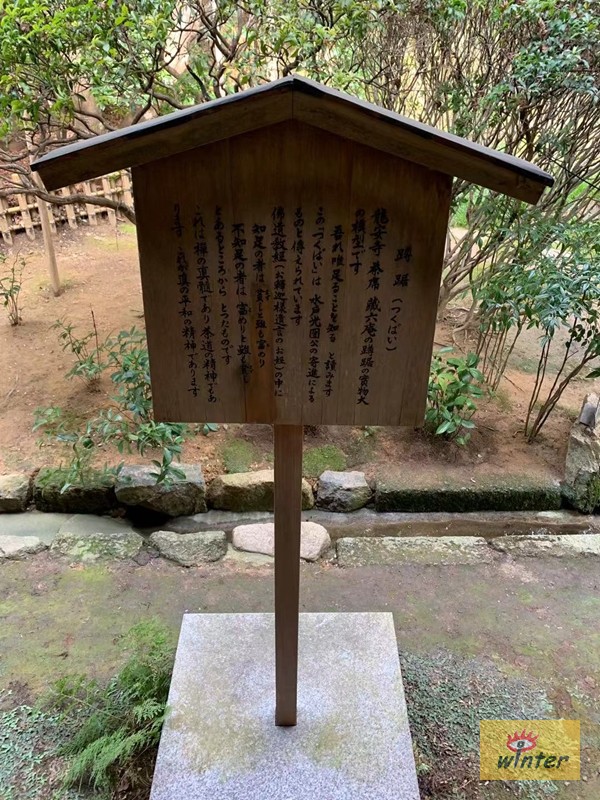 蹲踞（つくばい）
龍安寺 茶席 蔵六庵の蹲踞の実物大
の模型です
吾れ唯足ることを知る と読みます
この「つくばい」は 水戸光圀公の寄進による
ものと傳えられています
佛遺教經（お釋迦様遺言のお經）の中に
知足の者は 貧しと雖も富めり
不知足の者は 富めりと雖も貧し
とあるところから とったものです
これは禅の
茶道の精神でもあ
ります
真の平和の精神であります
winter